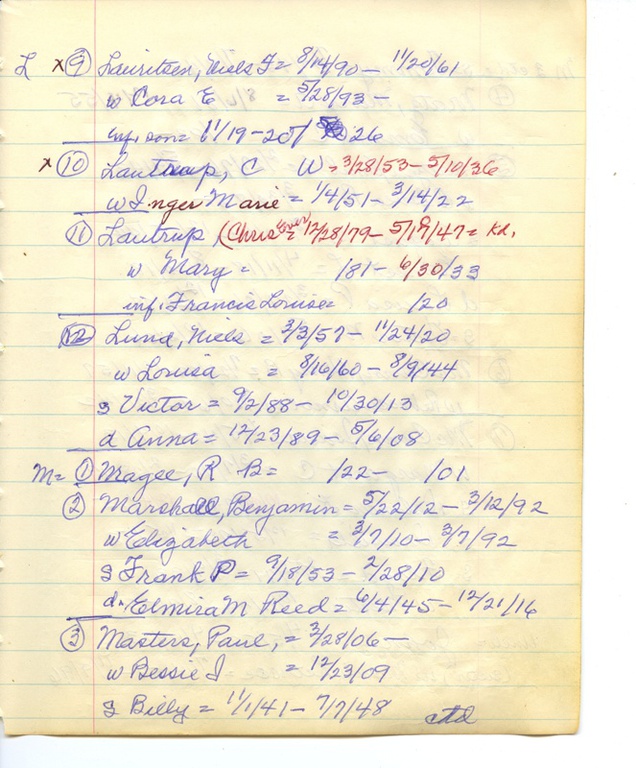 L x ⑨ Lauritsen, Niels J = 8/14/90 - 11/20/61
w Cora E = 5/28/93 -
inf. son = 11/19 - 20/ 26
x ⑩ Lautrup, C W = 3/28/53 - 5/10/36
w Inger Marie = 1/4/51 - 3/14/22
⑪ Lautrup (Chris = 12/28/79 - 5/19/47 = kd.
w Mary = /81 - 6/30/33
inf. Francis Louise = /20
⑫ Lund, Niels = 3/3/57 - 11/24/20
w Louisa = 8/16/60 - 8/9/44
s Victor = 9/2/88 - 10/30/13
d Anna = 12/23/89 - 5/6/08
M = ① Magee, R B = /22 - /01
② Marshall, Benjamin = 5/22/12 - 3/12/92
w Elizabeth = 3/7/10 - 3/7/92
s Frank P = 9/18/53 - 2/28/10
d. Elmira M Reed = 6/4/45 - 12/21/16
③ Masters, Paul, = 3/28/06 -
w Bessie I = 12/23/09
s Billy = 11/1/41 - 7/7/48 ctd